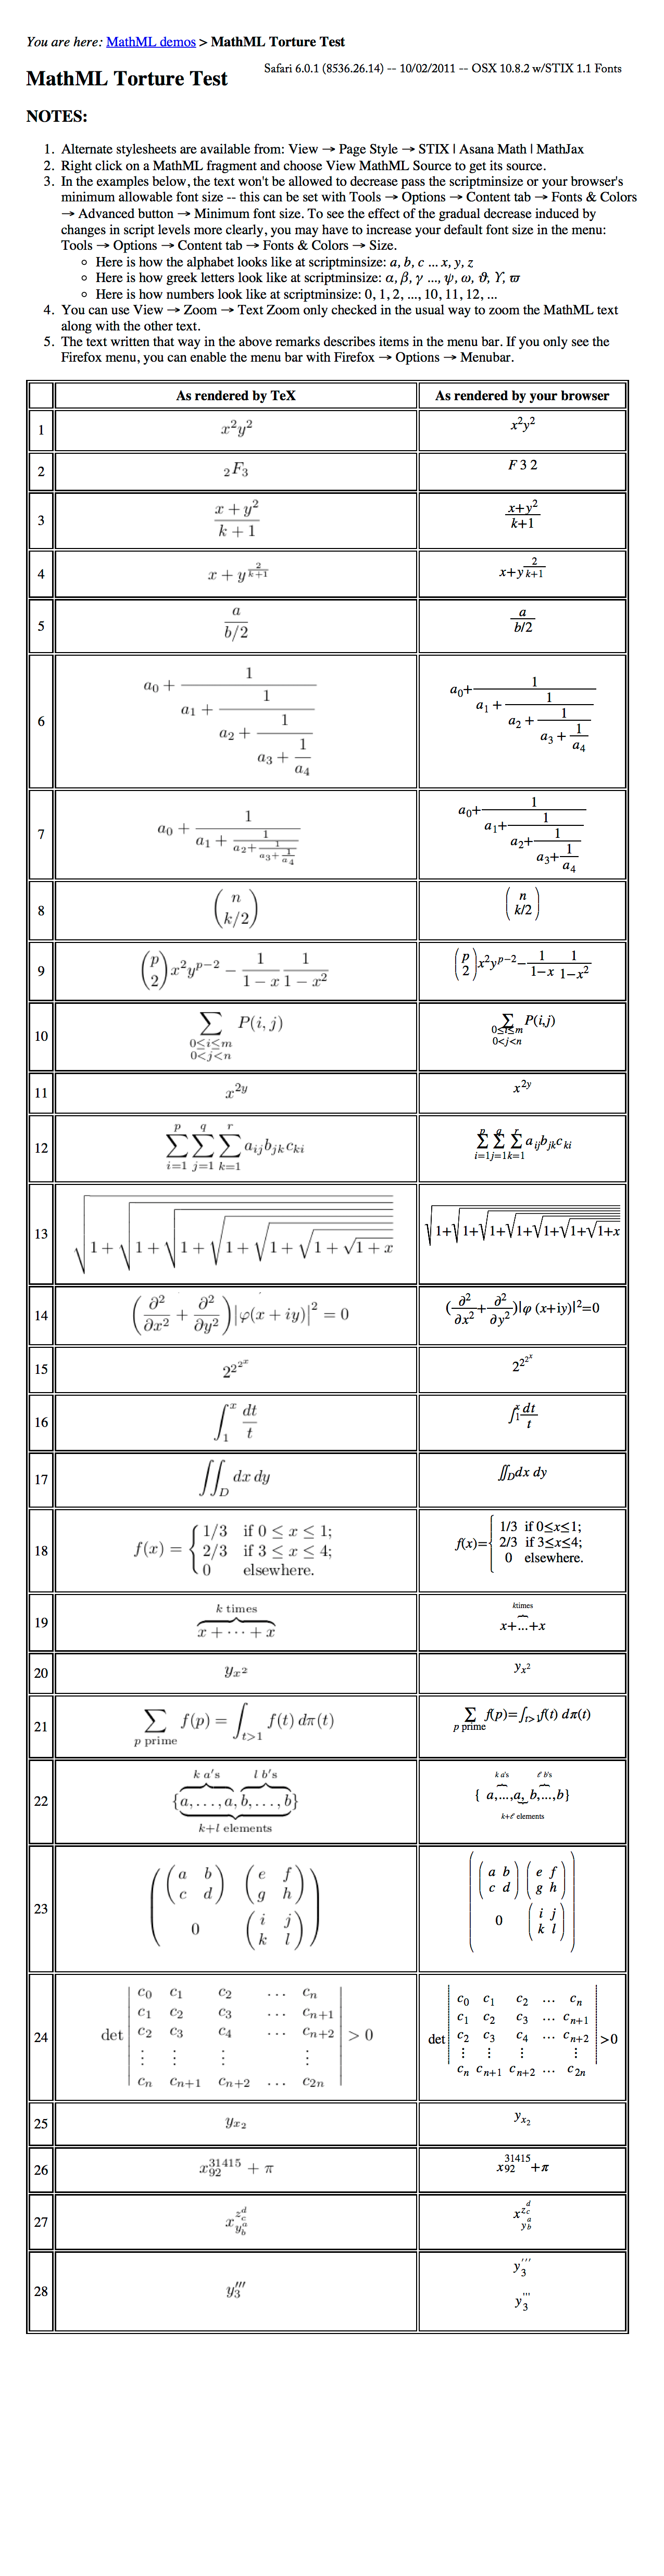 You are here: MathML demos > MathML Torture Test
MathML Torture Test
Safari 6.0.1 (8536.26.14) -- 10/02/2011 -- OSX 10.8.2 w/STIX 1.1 Fonts
NOTES:
1. Alternate stylesheets are available from: View → Page Style → STIX | Asana Math | MathJax
2. Right click on a MathML fragment and choose View MathML Source to get its source.
3. In the examples below, the text won't be allowed to decrease pass the scriptminsize or your browser's
minimum allowable font size -- this can be set with Tools → Options → Content tab → Fonts & Colors
→ Advanced button → Minimum font size. To see the effect of the gradual decrease induced by
changes in script levels more clearly, you may have to increase your default font size in the menu:
Tools → Options → Content tab → Fonts & Colors → Size.
◦ Here is how the alphabet looks like at scriptminsize: a, b, c ... x, y, z
◦ Here is how greek letters look like at scriptminsize: α, β, γ ..., ψ, ω, ϑ, ϒ, ϖ
◦ Here is how numbers look like at scriptminsize: 0, 1, 2, ..., 10, 11, 12, ...
4. You can use View → Zoom → Text Zoom only checked in the usual way to zoom the MathML text
along with the other text.
5. The text written that way in the above remarks describes items in the menu bar. If you only see the
Firefox menu, you can enable the menu bar with Firefox → Options → Menubar.
As rendered by TeX As rendered by your browser
1 x²y² x²y²
2 ₂F₃ F 3 2
3 (x + y²)/(k + 1) (x+y²)/(k+1)
4 x + y^(2/(k+1)) x+y^(2/(k+1))
5 a/(b/2) a/(b/2)
6 a₀ + 1/(a₁ + 1/(a₂ + 1/(a₃ + 1/a₄))) a₀+1/(a₁ + 1/(a₂ + 1/(a₃ + 1/a₄)))
7 a₀ + 1/(a₁ + 1/(a₂+1/(a₃+1/a₄))) a₀+1/(a₁+1/(a₂+1/(a₃+1/a₄)))
8 (n k/2) (n k/2)
9 (p 2) x²y^(p−2) − 1/(1 − x) 1/(1 − x²) (p 2) x²y^(p−2)−1/(1−x) 1/(1−x²)
10 ∑ 0≤i≤m 0<j<n P(i, j) ∑ 0≤i≤m 0<j<n P(i,j)
11 x^(2y) x^(2y)
12 ∑_(i=1)^p ∑_(j=1)^q ∑_(k=1)^r a_ij b_jk c_ki ∑_(i=1)^p ∑_(j=1)^q ∑_(k=1)^r a_ij b_jk c_ki
13 √(1 + √(1 + √(1 + √(1 + √(1 + √(1 + √(1 + x))))))) √(1+√(1+√(1+√(1+√(1+√(1+√(1+x)))))))
14 (∂²/∂x² + ∂²/∂y²)|φ(x + iy)|² = 0 (∂²/∂x²+∂²/∂y²)|φ (x+iy)|²=0
15 2^2^2^x 2^2^2^x
16 ∫₁^x dt/t ∫₁^x dt/t
17 ∬_D dx dy ∬_D dx dy
18 f(x) = { 1/3 if 0 ≤ x ≤ 1; f(x)={ 1/3 if 0≤x≤1;
2/3 if 3 ≤ x ≤ 4; 2/3 if 3≤x≤4;
0 elsewhere. 0 elsewhere.
19 k times x + ⋯ + x ktimes x+...+x
20 y_(x²) y_(x²)
21 ∑ p prime f(p) = ∫_(t>1) f(t) dπ(t) ∑ p prime f(p)=∫_(t>1) f(t) dπ(t)
22 k a's l b's k a's ℓ b's
{a, . . . , a, b, . . . , b} { a,...,a, b,...,b}
k+l elements k+ℓ elements
23 ((a b c d) (e f g h) 0 (i j k l)) ((a b c d) (e f g h) 0 (i j k l))
c₀ c₁ c₂ … cₙ c₀ c₁ c₂ … cₙ
c₁ c₂ c₃ … cₙ₊₁ c₁ c₂ c₃ … cₙ₊₁
24 det c₂ c₃ c₄ … cₙ₊₂ > 0 det c₂ c₃ c₄ … cₙ₊₂ >0
⋮ ⋮ ⋮ ⋮ ⋮ ⋮ ⋮ ⋮
cₙ cₙ₊₁ cₙ₊₂ … c₂ₙ cₙ cₙ₊₁ cₙ₊₂ … c₂ₙ
25 y_(x₂) y_(x₂)
26 x₉₂³¹⁴¹⁵ + π x₉₂³¹⁴¹⁵+π
27 x_(y_b^a)^(z_c^d) x_(y_b^a)^(z_c^d)
28 y₃''' y₃'''
y₃'''